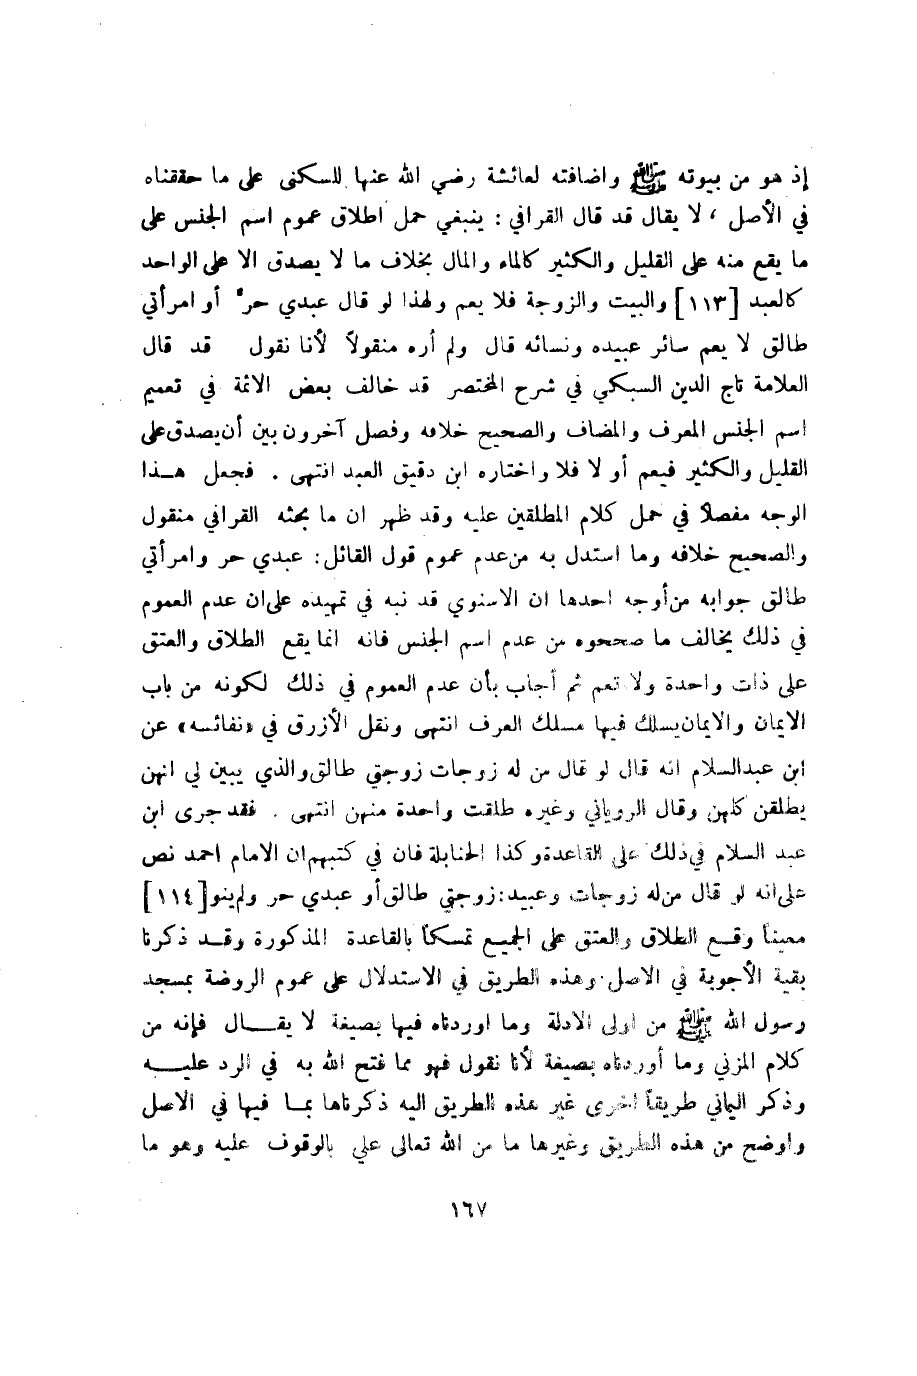 إذ هو من بيوته ﷺ واضافته لعائشة رضي الله عنها للسكنى على ما حققناه
في الأصل ، لا يقال قد قال القرافي : ينبغي حمل اطلاق عموم اسم الجنس على
ما يقع منه على القليل والكثير كالماء والمال بخلاف ما لا يصدق الا على الواحد
كالعبد [١١٣] والبيت والزوجة فلا يعم ولهذا لو قال عبدي حر أو امرأتي
طالق لا يعم سائر عبيده ونسائه قال ولم أره منقولاً لأنا نقول قد قال
العلامة تاج الدين السبكي في شرح المختصر قد خالف بعض الائمة في تعميم
اسم الجنس المعرف والمضاف والصحيح خلافه وفصل آخرون بين أن يصدق على
القليل والكثير فيعم أو لا فلا واختاره ابن دقيق العيد انتهى . فجعل هـذا
الوجه مفصلاً في حمل كلام المطلقين عليه وقد ظهر ان ما بحثه القرافي منقول
والصحيح خلافه وما استدل به من عدم عموم قول القائل : عبدي حر وامرأتي
طالق جوابه من أوجه احدها ان الاسنوي قد نبه في تمهيده على ان عدم العموم
في ذلك يخالف ما صححوه من عدم اسم الجنس فانه انما يقع الطلاق والعتق
على ذات واحدة ولا تعم ثم أجاب بأن عدم العموم في ذلك لكونه من باب
الايمان والايمان يسلك فيها مسلك العرف انتهى ونقل الأزرق في «نفائسه» عن
ابن عبدالسلام انه قال لو قال من له زوجات زوجتي طالق والذي يبين لي انهن
يطلقن كلهن وقال الروياني وغيره طلقت واحدة منهن انتهى . فقد جرى ابن
عبد السلام في ذلك على القاعدة وكذا الحنابلة فان في كتبهم ان الامام احمد نص
على انه لو قال من له زوجات وعبيد : زوجتي طالق أو عبدي حر ولم ينو [١١٤]
معيناً وقـع الطلاق والعتق على الجميع تمسكاً بالقاعدة المذكورة وقـد ذكرنا
بقية الأجوبة في الاصل . وهذه الطريق في الاستدلال على عموم الروضة بمسجد
رسول الله ﷺ من اولى الادلة وما اوردناه فيها بصيغة لا يقـال فإنه من
كلام المزني وما أوردناه بصيغة لأنا نقول فهو مما فتح الله به في الرد عليـه
وذكر اليماني طريقاً اخرى غير هذه الطريق اليه ذكرناها بمـا فيها في الاصل
واوضح من هذه الطريق وغيرها ما من الله تعالى علي بالوقوف عليه وهو ما
١٦٧